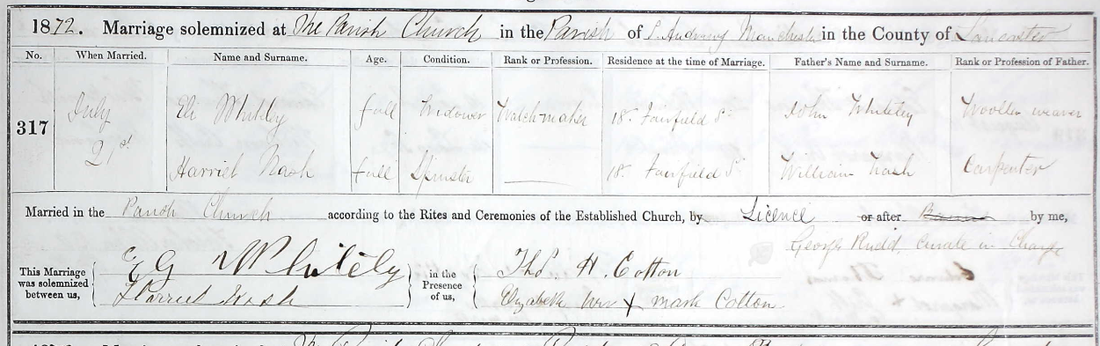 1872. Marriage solemnized at The Parish Church in the Parish of S. Andrews Manchester in the County of Lancaster
No. When Married. Name and Surname. Age. Condition. Rank or Profession. Residence at the time of Marriage. Father's Name and Surname. Rank or Profession of Father.
317 July 21st Eli Whiteley full Widower Watchmaker 18 Fairfield St John Whiteley Woollen weaver
Harriet Nash full Spinster 18 Fairfield St William Nash Carpenter
Married in the Parish Church according to the Rites and Ceremonies of the Established Church, by Licence or after by me,
George Rudd, Curate in Charge
This Marriage was solemnized between us, Whitely in the Presence of us, Thos H. Cotton
Harriet Nash Elizabeth her X mark Cotton